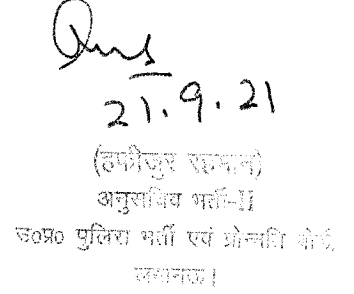 21.9.21
(हफीजुर रहमान)
अनुसचिव भर्ती-II
उ०प्र० पुलिस भर्ती एवं प्रोन्नति बोर्ड,
लखनऊ।